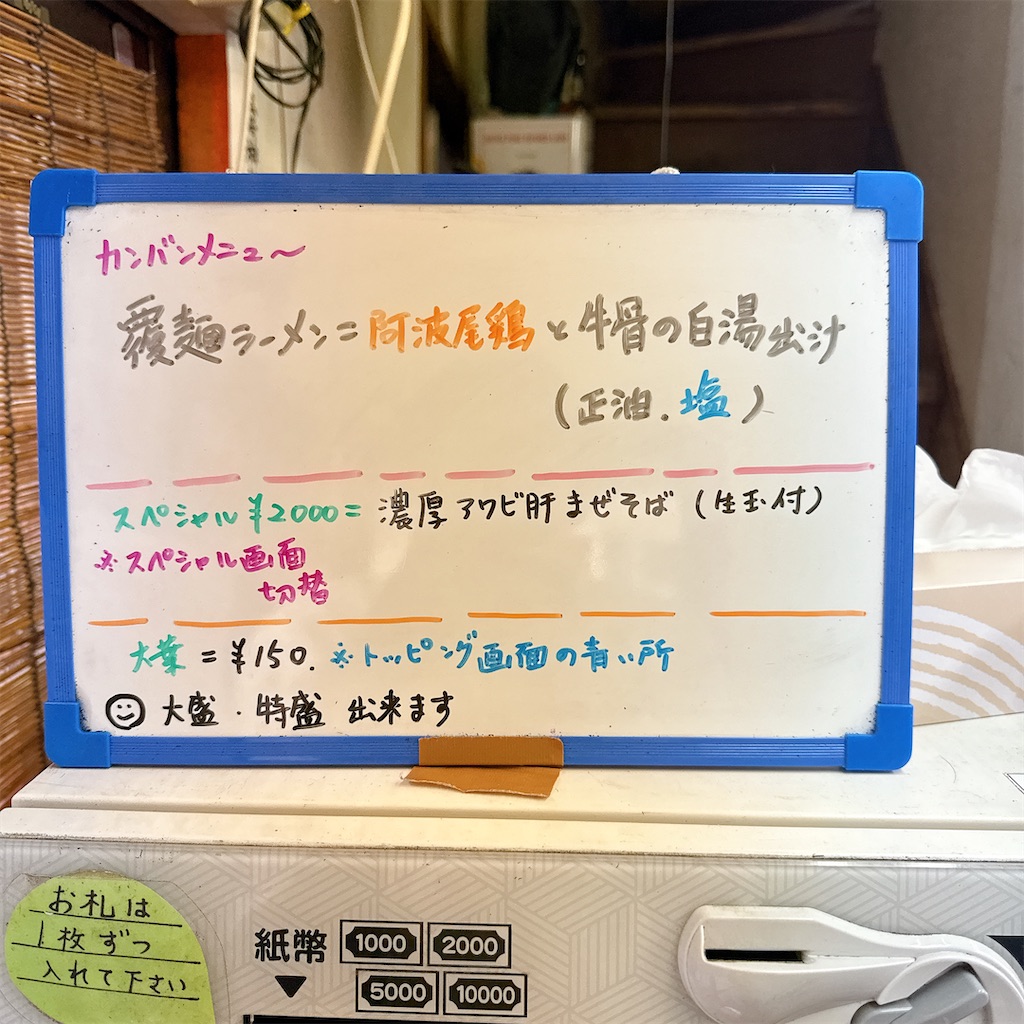 カンバンメニュ〜
覆麺ラーメン=阿波尾鶏と牛骨の白湯出汁
(正油.塩)
スペシャル¥2000=濃厚アワビ肝まぜそば(生玉付)
※スペシャル画面
切替
大葉=¥150.※トッピング画面の青い所
大盛・特盛 出来ます
お札は
1枚ずつ
入れて下さい
紙幣 1000 2000
5000 10000